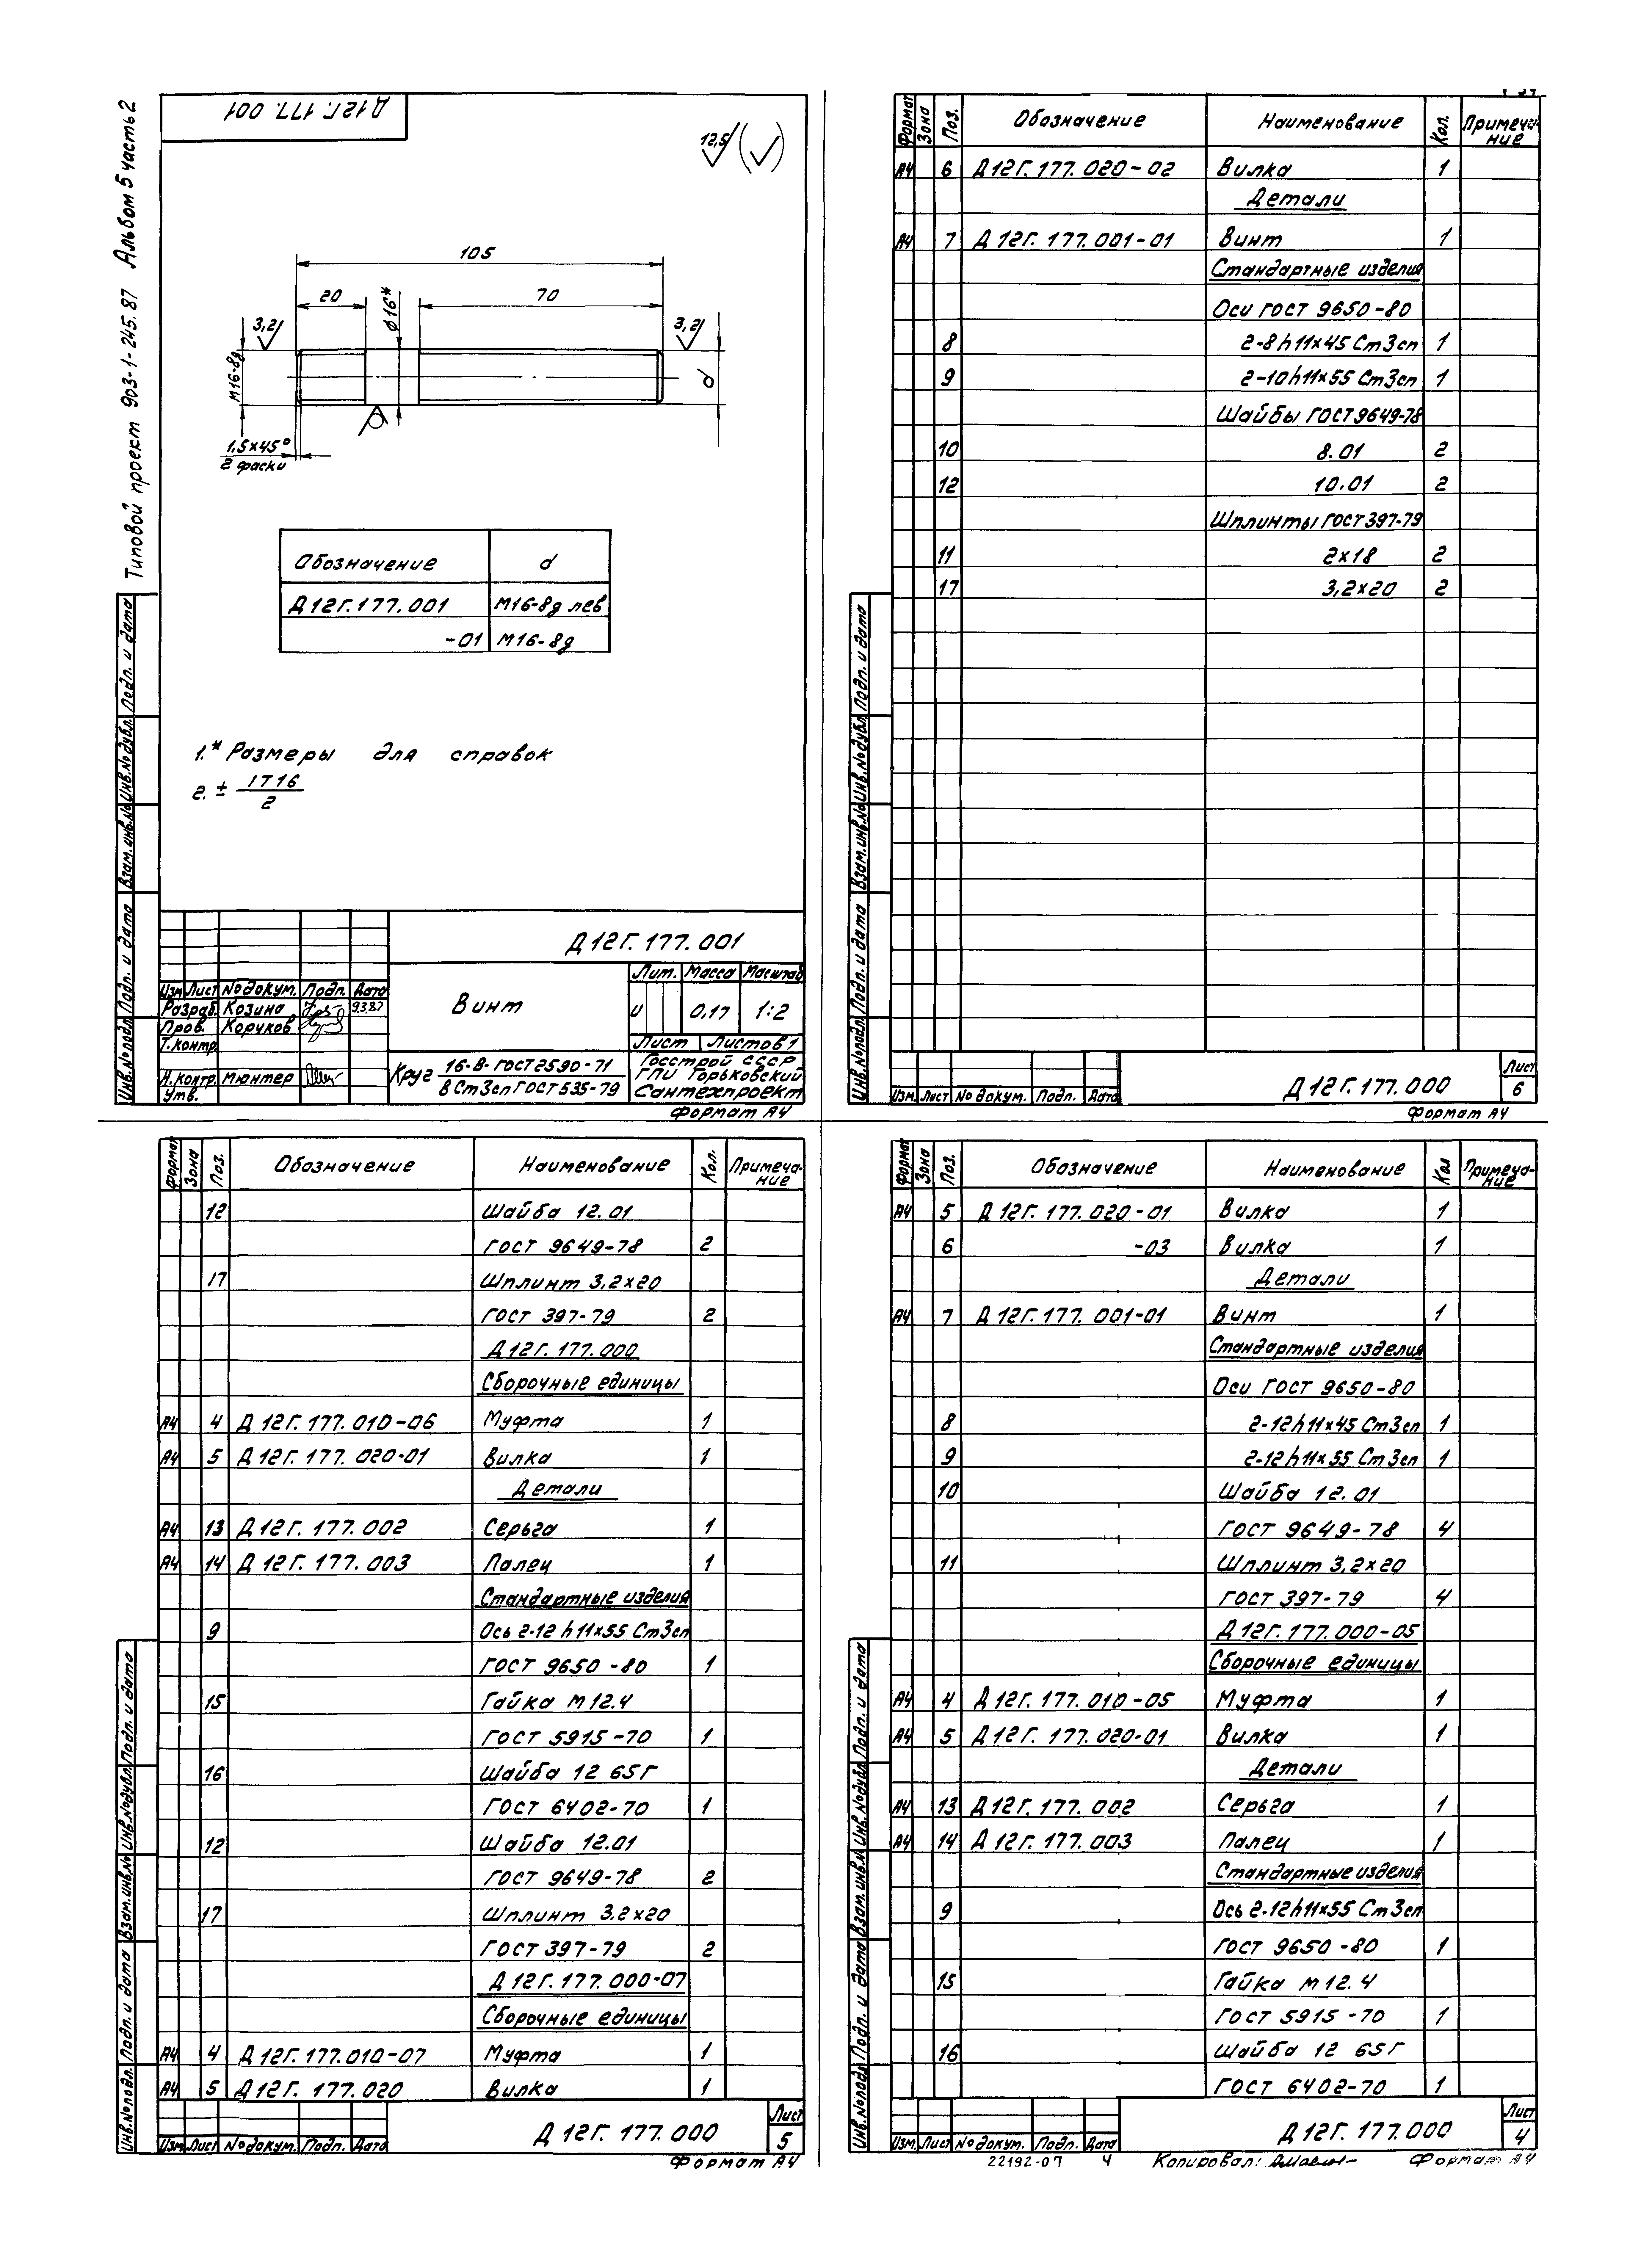 Типовой проект 903-1-245.87 Альбом 5 часть 2
Д 12Г. 177. 001
12,5
105
20
70
⌀16*
3,2
3,2
М16-8g
d
1,5×45°
2 фаски
Обозначение d
Д 12Г. 177. 001 М16-8g лев
-01 М16-8g
1.* Размеры для справок
2. ± IT16/2
Д 12Г. 177. 001
Винт
Лит. Масса Масштаб
и 0,17 1:2
Лист Листов 1
Изм. Лист № докум. Подп. Дата
Разраб. Козина 9.3.87
Пров. Коруков
Т.контр.
Н.контр. Мюнтер
Утв.
Круг 16-В-ГОСТ 2590-71
В Ст3сп ГОСТ 535-79
Госстрой СССР
ГПИ Горьковский
Сантехпроект
Формат А4
Инв.№ подл. Подп. и дата Взам.инв.№ Инв.№ дубл. Подп. и дата
Формат Зона Поз. Обозначение Наименование Кол. Примечание
А4 6 Д 12Г. 177. 020-02 Вилка 1
Детали
А4 7 Д 12Г. 177. 001-01 Винт 1
Стандартные изделия
Оси ГОСТ 9650-80
8 2-8h11×45 Ст3сп 1
9 2-10h11×55 Ст3сп 1
Шайбы ГОСТ 9649-78
10 8.01 2
12 10.01 2
Шплинты ГОСТ 397-79
11 2×18 2
17 3,2×20 2
Инв.№ подл. Подп. и дата Взам.инв.№ Инв.№ дубл. Подп. и дата
Изм. Лист № докум. Подп. Дата
Д 12Г. 177. 000
Лист
6
Формат А4
Формат Зона Поз. Обозначение Наименование Кол. Примечание
12 Шайба 12.01
ГОСТ 9649-78 2
17 Шплинт 3,2×20
ГОСТ 397-79 2
Д 12Г. 177. 000
Сборочные единицы
А4 4 Д 12Г. 177. 010-06 Муфта 1
А4 5 Д 12Г. 177. 020-01 Вилка 1
Детали
А4 13 Д 12Г. 177. 002 Серьга 1
А4 14 Д 12Г. 177. 003 Палец 1
Стандартные изделия
9 Ось 2-12h11×55 Ст3сп
ГОСТ 9650-80 1
15 Гайка М12.4
ГОСТ 5915-70 1
16 Шайба 12 65Г
ГОСТ 6402-70 1
12 Шайба 12.01
ГОСТ 9649-78 2
17 Шплинт 3.2×20
ГОСТ 397-79 2
Д 12Г. 177. 000-07
Сборочные единицы
А4 4 Д 12Г. 177. 010-07 Муфта 1
А4 5 Д 12Г. 177. 020 Вилка 1
Инв.№ подл. Подп. и дата Взам.инв.№ Инв.№ дубл. Подп. и дата
Изм. Лист № докум. Подп. Дата
Д 12Г. 177. 000
Лист
5
Формат А4
Формат Зона Поз. Обозначение Наименование Кол Примечание
А4 5 Д 12Г. 177. 020-01 Вилка 1
6 -03 Вилка 1
Детали
А4 7 Д 12Г. 177. 001-01 Винт 1
Стандартные изделия
Оси ГОСТ 9650-80
8 2-12h11×45 Ст3сп 1
9 2-12h11×55 Ст3сп 1
10 Шайба 12.01
ГОСТ 9649-78 4
11 Шплинт 3,2×20
ГОСТ 397-79 4
Д 12Г. 177. 000-05
Сборочные единицы
А4 4 Д 12Г. 177. 010-05 Муфта 1
А4 5 Д 12Г. 177. 020-01 Вилка 1
Детали
А4 13 Д 12Г. 177. 002 Серьга 1
А4 14 Д 12Г. 177. 003 Палец 1
Стандартные изделия
9 Ось 2-12h11×55 Ст3сп
ГОСТ 9650-80 1
15 Гайка М12.4
ГОСТ 5915-70 1
16 Шайба 12 65Г
ГОСТ 6402-70 1
Инв.№ подл. Подп. и дата Взам.инв.№ Инв.№ дубл. Подп. и дата
Изм. Лист № докум. Подп. Дата
Д 12Г. 177. 000
Лист
4
22192-07 4 Копировал: Формат А4